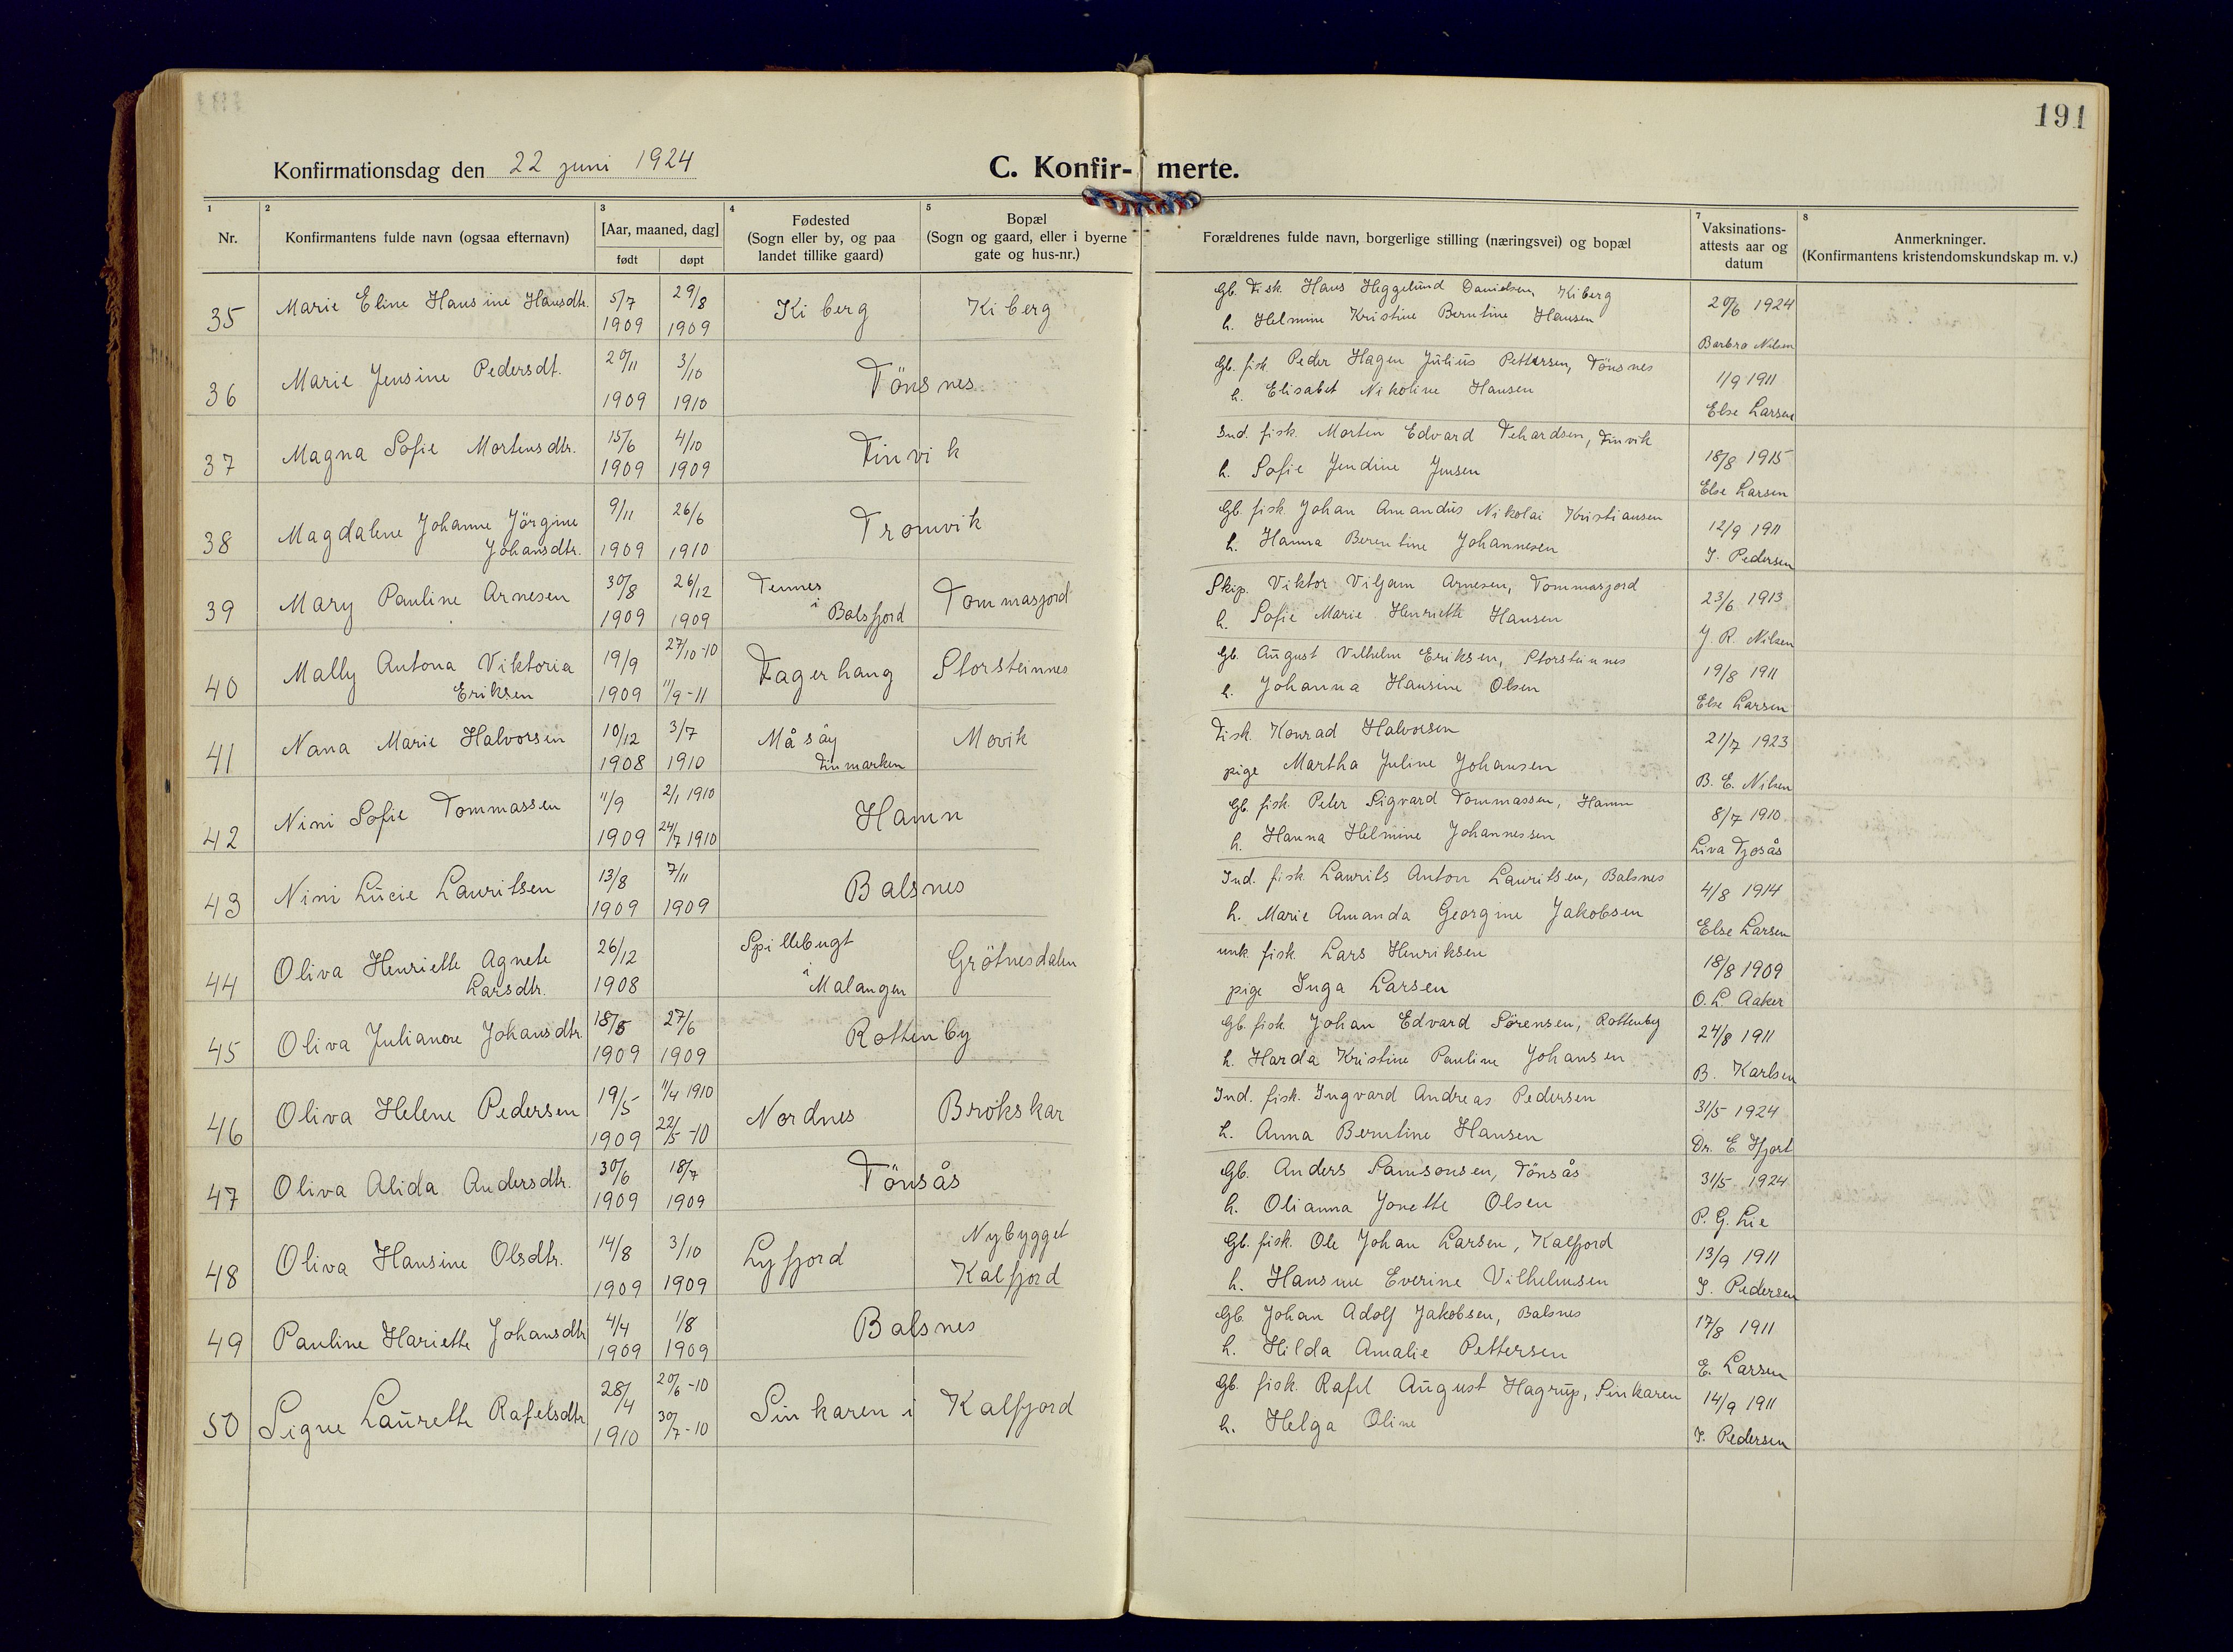 191
Konfirmationsdag den 22 juni 1924
C. Konfir- merte.
1 Nr.
2 Konfirmantens fulde navn (ogsaa efternavn)
3 [Aar, maaned, dag]
født døpt
4 Fødested
(Sogn eller by, og paa
landet tillike gaard)
5 Bopæl
(Sogn og gaard, eller i byerne
gate og hus-nr.)
Forældrenes fulde navn, borgerlige stilling (næringsvei) og bopæl
7 Vaksinations-
attests aar og
datum
8 Anmerkninger.
(Konfirmantens kristendomskundskap m. v.)
35 Marie Eline Hansine Hansdtr. 5/7 1909 29/8 1909 Kiberg Kiberg
Gb. Fisk. Hans Heggelund Danielsen, Kiberg
h. Helmine Kristine Berntine Hansen
20/6 1924
Barbra Nilsen
36 Marie Jensine Pedersdt. 20/11 1909 3/10 1910 Tönsnes
Gb. fisk. Peder Hagen Julius Pettersen, Tönsnes
h. Elisabet Nikoline Hansen
1/9 1911
Else Larsen
37 Magna Sofie Mortensdtr. 15/6 1909 4/10 1909 Finvik
Ind. fisk. Morten Edvard Fehardsen, Finvik
h. Sofie Jendine Jensen
18/8 1915
Else Larsen
38 Magdalene Johanne Jörgine
Johansdtr. 9/11 1909 26/6 1910 Tromvik
Gb. fisk. Johan Amandus Nikolai Kristiansen
h. Hanna Berentine Johannesen
12/9 1911
I. Pedersen
39 Mary Pauline Arnesen 30/8 1909 26/12 1909 Tennes
i
Balsfjord Tommasjord
Skip. Viktor Viljam Arnesen, Tommasjord
h. Sofie Marie Henriette Hansen
23/6 1913
J. R. Nilsen
40 Mally Antona Viktoria
Eriksen 19/9 1909 27/10-10 11/9-11 Fagerhaug Storsteinnes
Gb. August Vilhelm Eriksen, Storsteinnes
h. Johanna Hansine Olsen
19/8 1911
Else Larsen
41 Nana Marie Halvorsen 10/12 1908 3/7 1910 Måsöy
Finmarken Movik
Fisk. Konrad Halvorsen
pige Martha Juline Johansen
21/7 1923
B. E. Nilsen
42 Nini Sofie Tommassen 11/9 1909 2/1 1910 24/7 1910 Hamn
Gb. fisk. Peter Sigvard Tommassen, Hamn
h. Hanna Helmine Johannessen
8/7 1910
Liva Tjosås
43 Nini Lucie Lauritsen 13/8 1909 7/11 1909 Balsnes
Ind. fisk. Laurits Anton Lauritsen, Balsnes
h. Marie Amanda Georgine Jakobsen
4/8 1914
Else Larsen
44 Oliva Henriette Agnete
Larsdtr. 26/12 1908 Spillebugt
i
Malangen Grötnesdalen
unk. fisk. Lars Henriksen
pige Inga Larsen
18/8 1909
O. L. Aaker
45 Oliva Julianore Johansdtr. 18/5 1909 27/6 1909 Rottenby
Gb. fisk. Johan Edvard Sörensen, Rottenby
h. Harda Kristine Pauline Johansen
24/8 1911
B. Karlsen
46 Oliva Helene Pedersen 19/5 1909 11/4 1910 22/5-10 Nordnes Brökskar
Ind. fisk. Ingvard Andreas Pedersen
h. Anna Berntine Hansen
31/5 1924
Dr. E. Hjort
47 Oliva Alida Andersdtr. 30/6 1909 18/7 1909 Tönsås
Gb. Anders Samsonsen, Tönsås
h. Olianna Jonette Olsen
31/5 1924
P. G. Lie
48 Oliva Hansine Olsdtr. 14/8 1909 3/10 1909 Lyfjord Nybygget
Kalfjord
Gb. fisk. Ole Johan Larsen, Kalfjord
h. Hansine Everine Vilhelmsen
13/9 1911
I. Pedersen
49 Pauline Hariette Johansdtr. 4/4 1909 1/8 1909 Balsnes
Gb. Johan Adolf Jakobsen, Balsnes
h. Hilda Amalie Pettersen
17/8 1911
E. Larsen
50 Signe Laurette Rafelsdtr. 28/4 1910 20/6-10 30/7-10 Sinkaren i Kalfjord
Gb. fisk. Rafel August Hagrup, Sinkaren
h. Helga Oline
14/9 1911
I. Pedersen